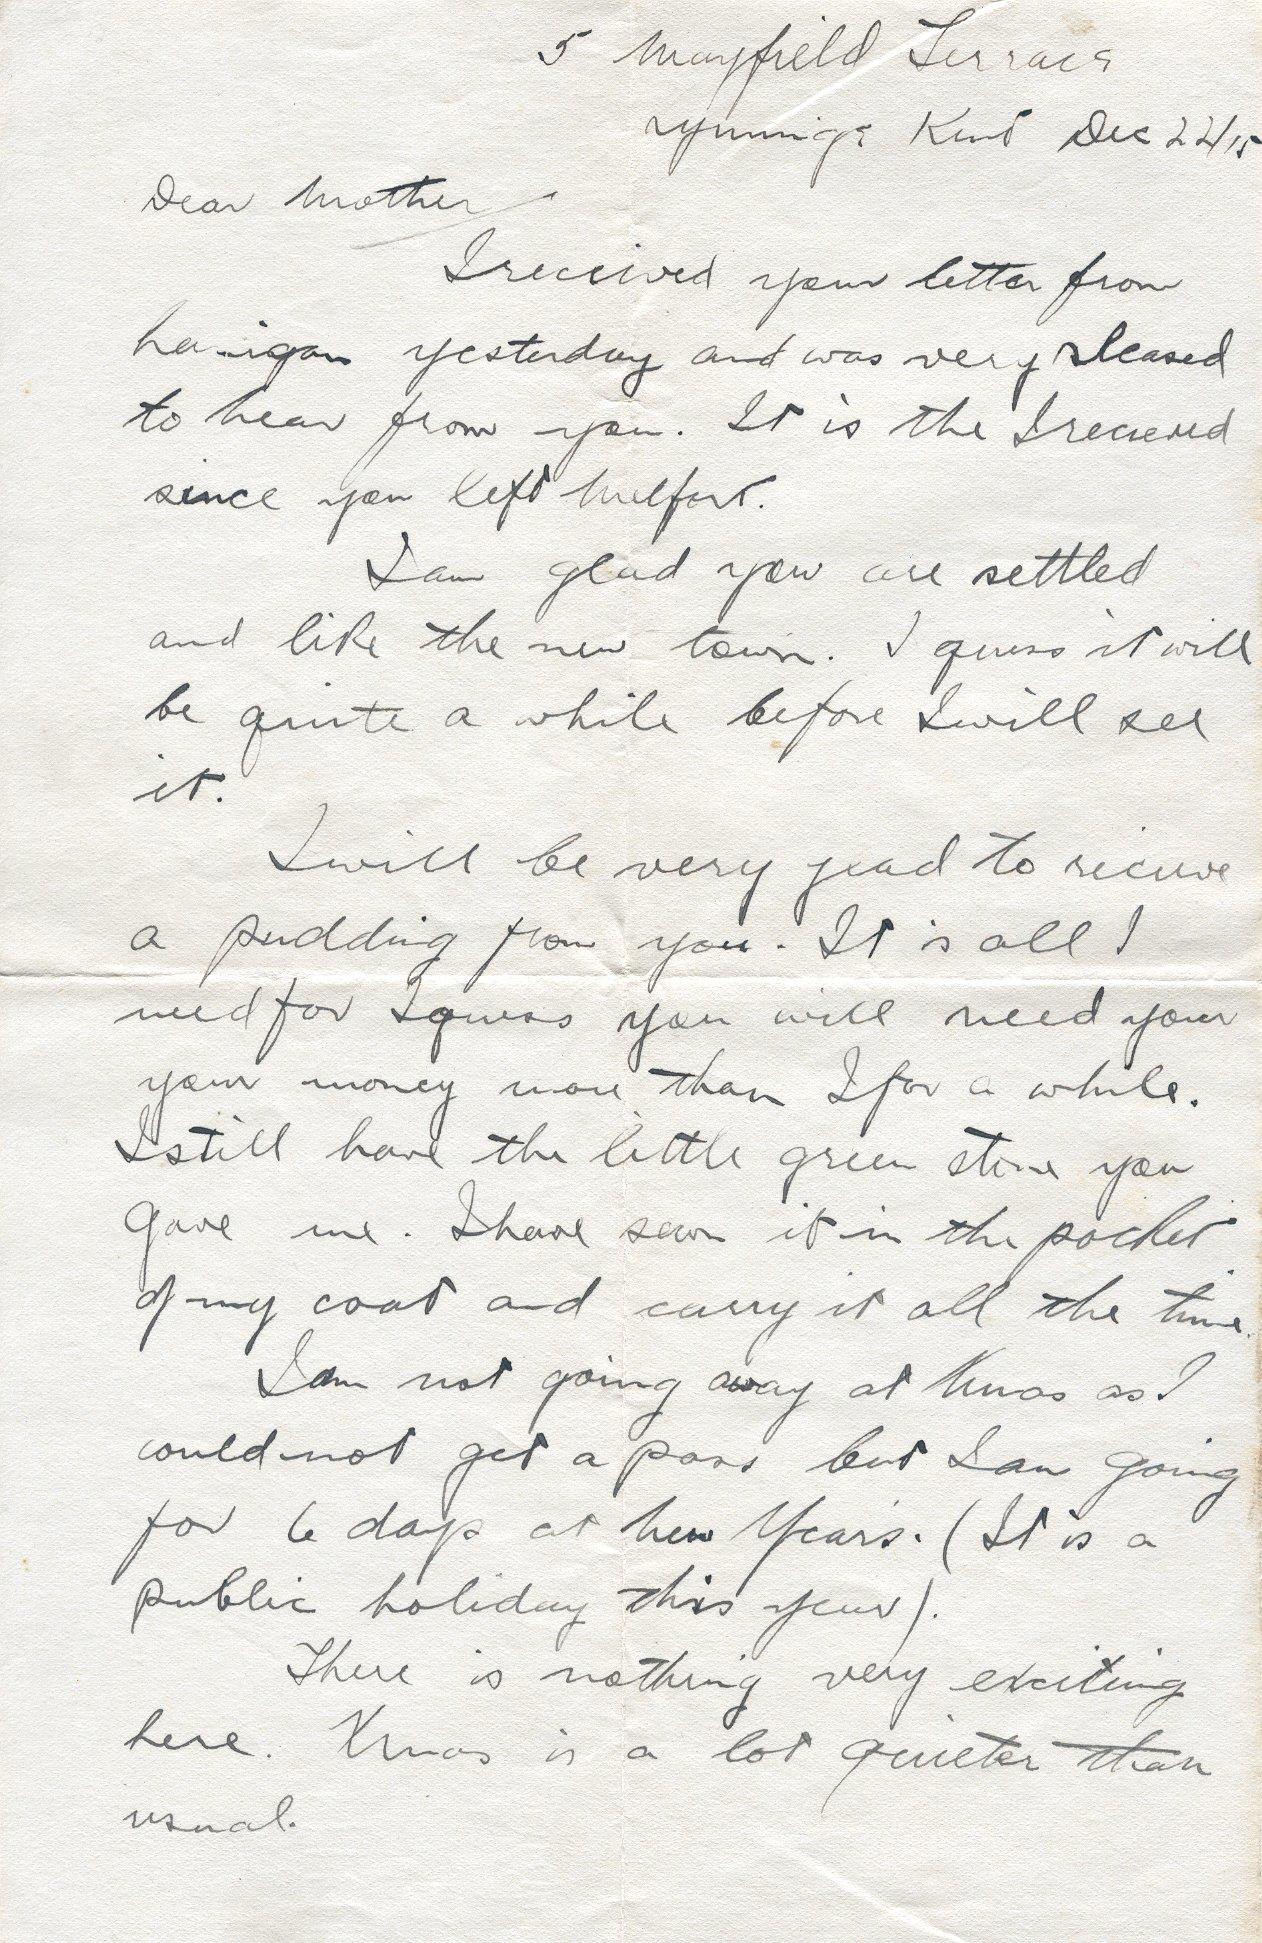 5 Mayfield Terrace
Lyminge Kent Dec 22/15
Dear Mother
I received your letter from
yesterday and was very pleased
to hear from you. It is the I received
since you left Melfort.
I am glad you are settled
and like the new town. I guess it will
be quite a while before I will see
it.
I will be very glad to recieve
a pudding from you. It is all I
need for I guess you will need your
your money more than I for a while.
I still have the little green stone you
gave me. I have sewn it in the pocket
of my coat and carry it all the time.
I am not going away at Xmas as I
could not get a pass but I am going
for 6 days at New Years. (It is a
public holiday this year).
There is nothing very exciting
here. Xmas is a lot quieter than
usual.